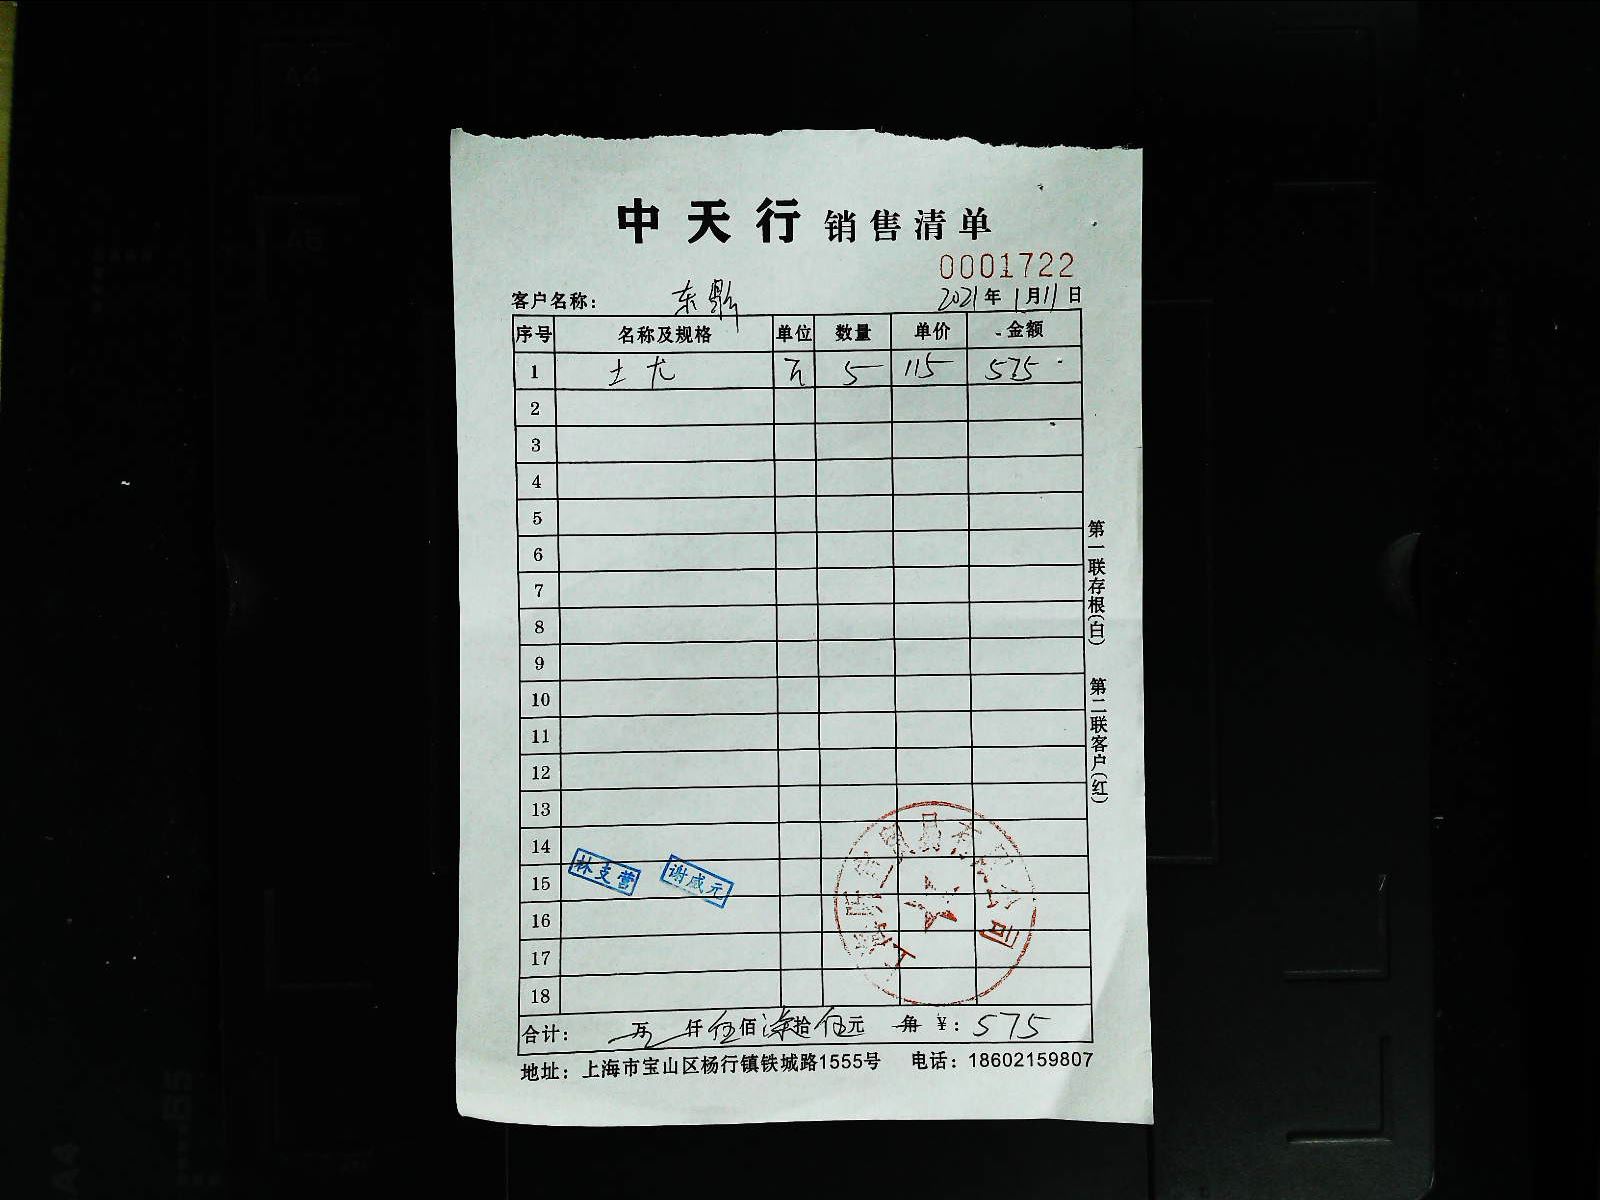 中天行 销售清单
0001722
客户名称： 东鼎 2021年1月11日
序号 名称及规格 单位 数量 单价 金额
1 土尤 5 115 575
2
3
4
5
6
7
8
9
10
11
12
13
14
15
16
17
18
林支营 谢咸元
贸易有限公司
合计： 万 仟伍佰柒拾伍元 角 ¥：575
地址：上海市宝山区杨行镇铁城路1555号 电话：18602159807
第一联存根(白) 第二联客户(红)